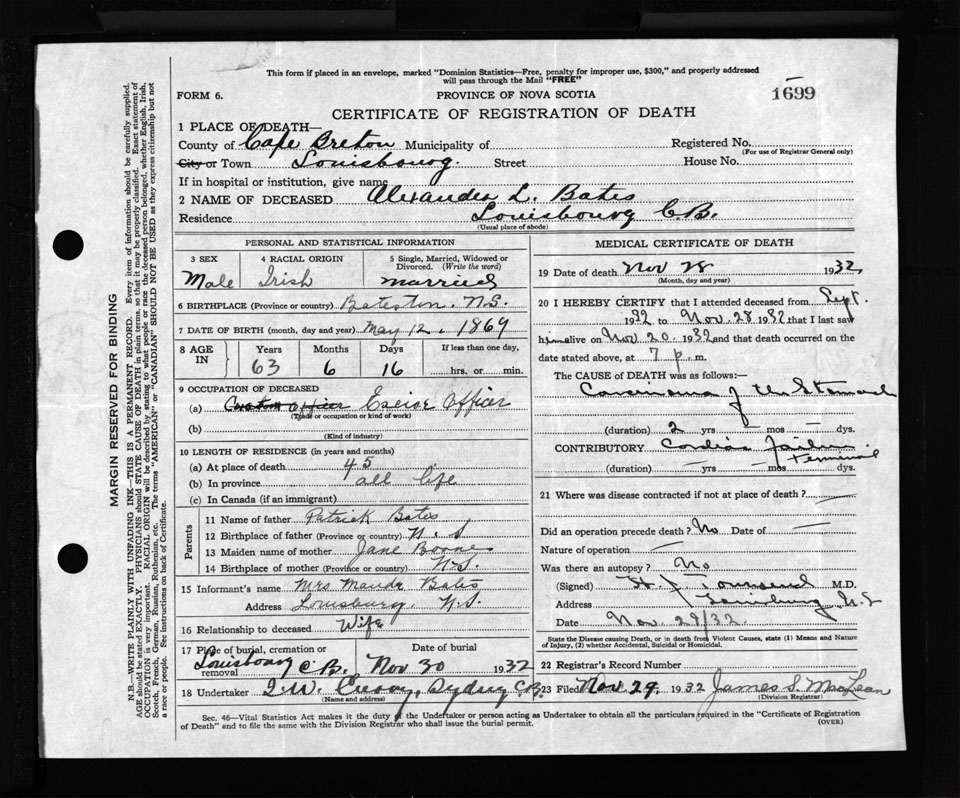 This form if placed in an envelope, marked "Dominion Statistics—Free, penalty for improper use, $300," and properly addressed
will pass through the Mail "FREE"
FORM 6.
PROVINCE OF NOVA SCOTIA
1699
CERTIFICATE OF REGISTRATION OF DEATH
1 PLACE OF DEATH—
County of Cape Breton Municipality of
Registered No.
(For use of Registrar General only)
City or Town Louisbourg. Street
House No.
If in hospital or institution, give name
2 NAME OF DECEASED Alexander L. Bates
Residence Louisbourg C.B.
(Usual place of abode)
PERSONAL AND STATISTICAL INFORMATION
3 SEX
Male
4 RACIAL ORIGIN
Irish
5 Single, Married, Widowed or
Divorced. (Write the word)
Married
6 BIRTHPLACE (Province or country) Bateston, N.S.
7 DATE OF BIRTH (month, day and year) May 12. 1869
8 AGE IN
Years Months Days
If less than one day,
63 6 16
hrs. or min.
9 OCCUPATION OF DECEASED
(a) Custom Officer Excise Officer
(Trade or occupation or kind of work)
(b)
(Kind of industry)
10 LENGTH OF RESIDENCE (in years and months)
(a) At place of death 45
(b) In province all life
(c) In Canada (if an immigrant)
Parents
11 Name of father Patrick Bates
12 Birthplace of father (Province or country) N.S
13 Maiden name of mother Jane
14 Birthplace of mother (Province or country) N.S.
15 Informant's name Mrs Maude Bates
Address Louisburg, N.S.
16 Relationship to deceased Wife
17 Place of burial, cremation or
removal
Date of burial
Louisbourg C.B. Nov 30 1932
18 Undertaker Sydney C.B.
(Name and address)
MEDICAL CERTIFICATE OF DEATH
19 Date of death Nov 28 1932
(Month, day and year)
20 I HEREBY CERTIFY that I attended deceased from Sept.
1932 to Nov. 28 1932 that I last saw
him alive on Nov. 20 1932 and that death occurred on the
date stated above, at 7 p.m.
The CAUSE of DEATH was as follows:—
Carcinoma of the Stomach
(duration) 2 yrs — mos — dys.
CONTRIBUTORY Cardiac failure
terminal
(duration) — yrs — mos dys.
21 Where was disease contracted if not at place of death? —
Did an operation precede death? No Date of —
Nature of operation —
Was there an autopsy? No
(Signed) H J Townsend M.D.
Address Louisburg N.S
Date Nov. 29/32.
State the Disease causing Death, or in death from Violent Causes, state (1) Means and Nature
of Injury, (2) whether Accidental, Suicidal or Homicidal.
22 Registrar's Record Number
23 Filed Nov. 29, 1932 James S. MacLean
(Division Registrar)
Sec. 46—Vital Statistics Act makes it the duty of the Undertaker or person acting as Undertaker to obtain all the particulars required in the "Certificate of Registration
of Death" and to file the same with the Division Registrar who shall issue the burial permit.
(OVER)
MARGIN RESERVED FOR BINDING
N.B.—WRITE PLAINLY WITH UNFADING INK—THIS IS A PERMANENT RECORD. Every item of information should be carefully supplied.
AGE should be stated EXACTLY. PHYSICIANS should STATE CAUSE OF DEATH in plain terms, so that it may be properly classified. Exact statement of
OCCUPATION is very important. RACIAL ORIGIN will be described by stating to what people or race the deceased person belonged, whether English, Irish,
Scotch, French, German, Russian, Ruthenian, etc. The terms "AMERICAN" or "CANADIAN" SHOULD NOT BE USED as they express citizenship but not
a race or people. See instructions on back of Certificate.